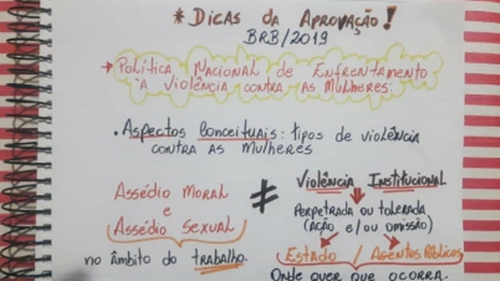 * Dicas da Aprovação!
BRB/2019
→ Política Nacional de Enfrentamento
à Violência contra as Mulheres:
• Aspectos Conceituais: tipos de violência
contra as mulheres
Assédio Moral
e
Assédio Sexual
no âmbito do trabalho.
≠
Violência Institucional
Perpetrada ou tolerada
(Ação e/ou omissão)
Estado / Agentes Públicos
Onde quer que ocorra.